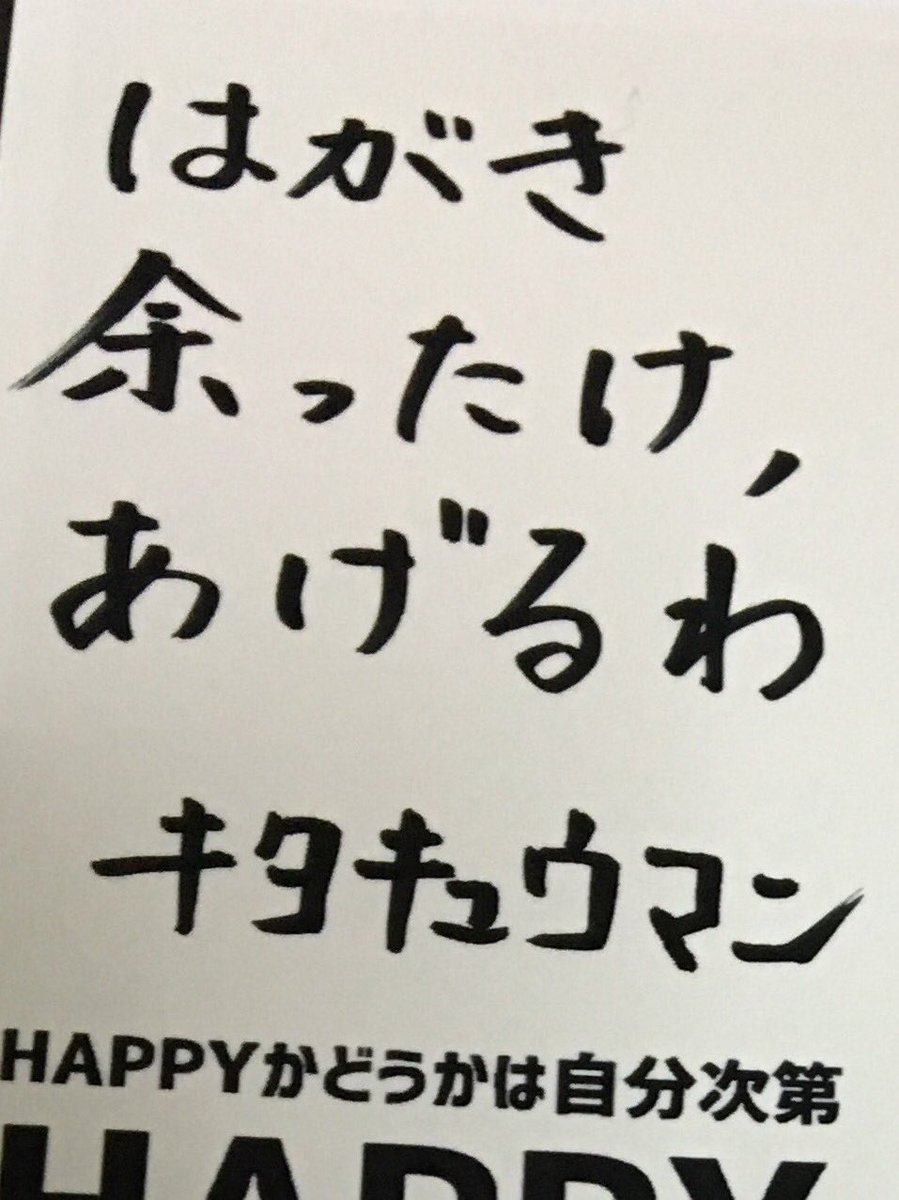 はがき
余ったけ、
あげるわ
キタキュウマン
HAPPYかどうかは自分次第
HAPPY